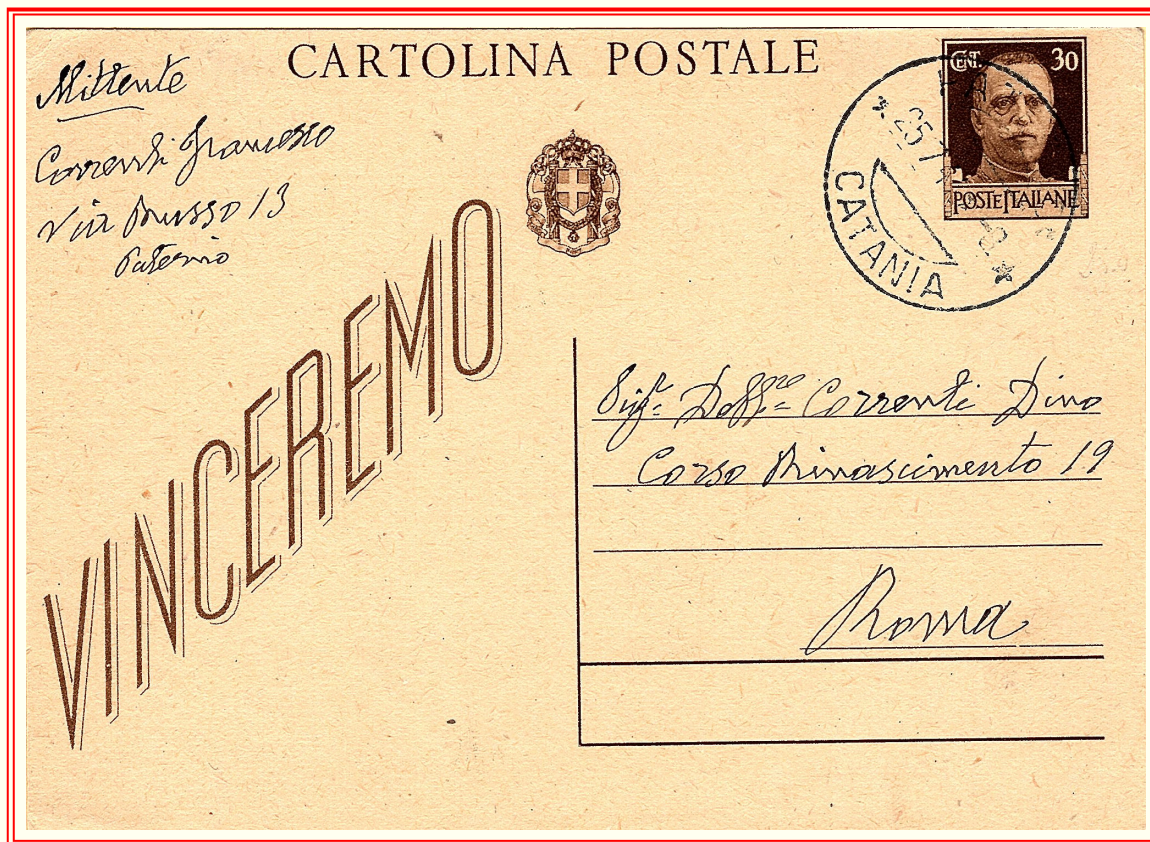 CARTOLINA POSTALE
Mittente
Correnti Francesco
Via Musso 13
Paternò
CENT. 30
POSTE ITALIANE
25.7
CATANIA
VINCEREMO
Sigr. Correnti Dino
Corso Rinascimento 19
Roma